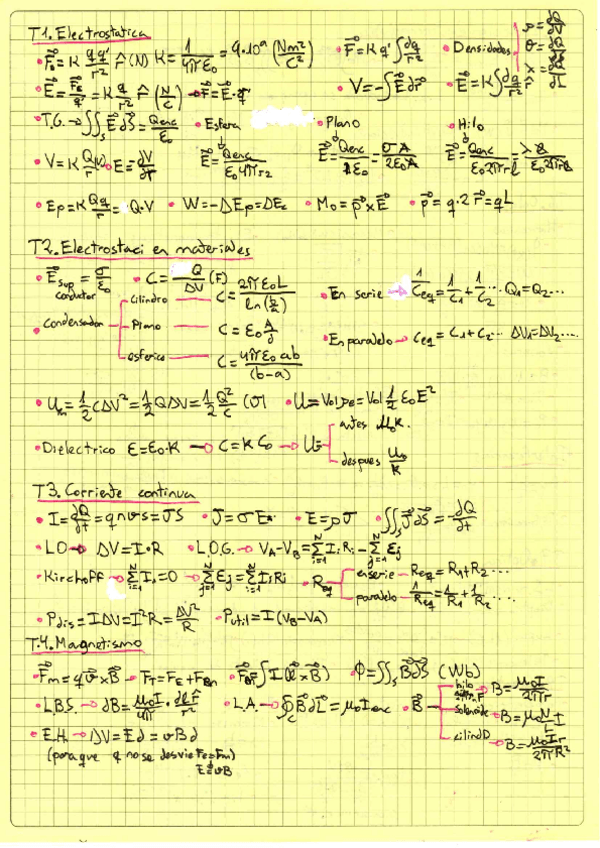 T1. Electrostatica
• F⃗e = K qq'/r² r̂ (N) K = 1/4πε₀ = 9·10⁹ (Nm²/C²) • F⃗ = K q' ∫ dq/r² • Densidades ρ = dQ/dV σ = dQ/dS λ = dQ/dL
• E⃗ = F⃗e/q' = K q/r² r̂ (N/C) → F⃗ = E⃗·q' • V = -∫ E⃗ dr⃗ • E⃗ = K ∫ dq/r² r̂
• T.G. → ∬s E⃗ dS⃗ = Qenc/ε₀ • Esfera • Plano • Hilo
• V = K Q/r (V) • E = dV/dr E⃗ = Qenc/ε₀4πr² E⃗ = Qenc/2ε₀ = σA/2ε₀A E⃗ = Qenc/ε₀2πrl = λl/ε₀2πrl
• Ep = K Qq/r = Q·V • W = -ΔEp = ΔEc • M₀ = p⃗ × E⃗ • p⃗ = q·2 r⃗ = qL
T2. Electrostaci en materiales
• E⃗sup conductor = σ/ε₀ • C = Q/ΔV (F)
• Condensador
cilindro — C = 2πε₀L/ln(b/a)
Plano — C = ε₀ A/d
esferico — C = 4πε₀ab/(b-a)
• En serie → 1/Ceq = 1/C₁ + 1/C₂ ... Q₁ = Q₂...
• En paralelo → Ceq = C₁ + C₂... ΔV₁ = ΔV₂...
• U = 1/2 CΔV² = 1/2 QΔV = 1/2 Q²/C (J) • U = Vol ρe = Vol 1/2 ε₀E²
• Dielectrico ε = ε₀·K → C = K C₀ → U
antes U₀K.
despues U₀/K
T3. Corriente continua
• I = dQ/dt = qnvs = JS • J = σE • E = ρJ • ∬s J⃗dS⃗ = -dQ/dt
• L.O → ΔV = I·R • L.O.G. → VA-VB = Σ Ii Ri - Σ Ej
• Kirchoff → Σ Ii = 0 → Σ Ej = Σ IiRi • Req
en serie → Req = R₁ + R₂...
paralelo → 1/Req = 1/R₁ + 1/R₂...
• Pdis = IΔV = I²R = ΔV²/R • Putil = I(VB-VA)
T.4. Magnetismo
• F⃗m = qv⃗ × B⃗ → FT = FE + FBm • F⃗B = ∫ I(dl⃗ × B⃗) • Φ = ∬s B⃗dS⃗ (Wb)
• L.B.S. → dB⃗ = μ₀I/4π · dl r̂/r² • L.A. → ∮c B⃗dL⃗ = μ₀Ienc • B⃗
hilo → B = μ₀I/2πr
solenoide → B = μ₀ N/L I
cilindD → B = μ₀Ir/2πR²
• E.H. → ΔV = Ed = vBd
(para que q no se desvie Fe = Fm)
E = vB